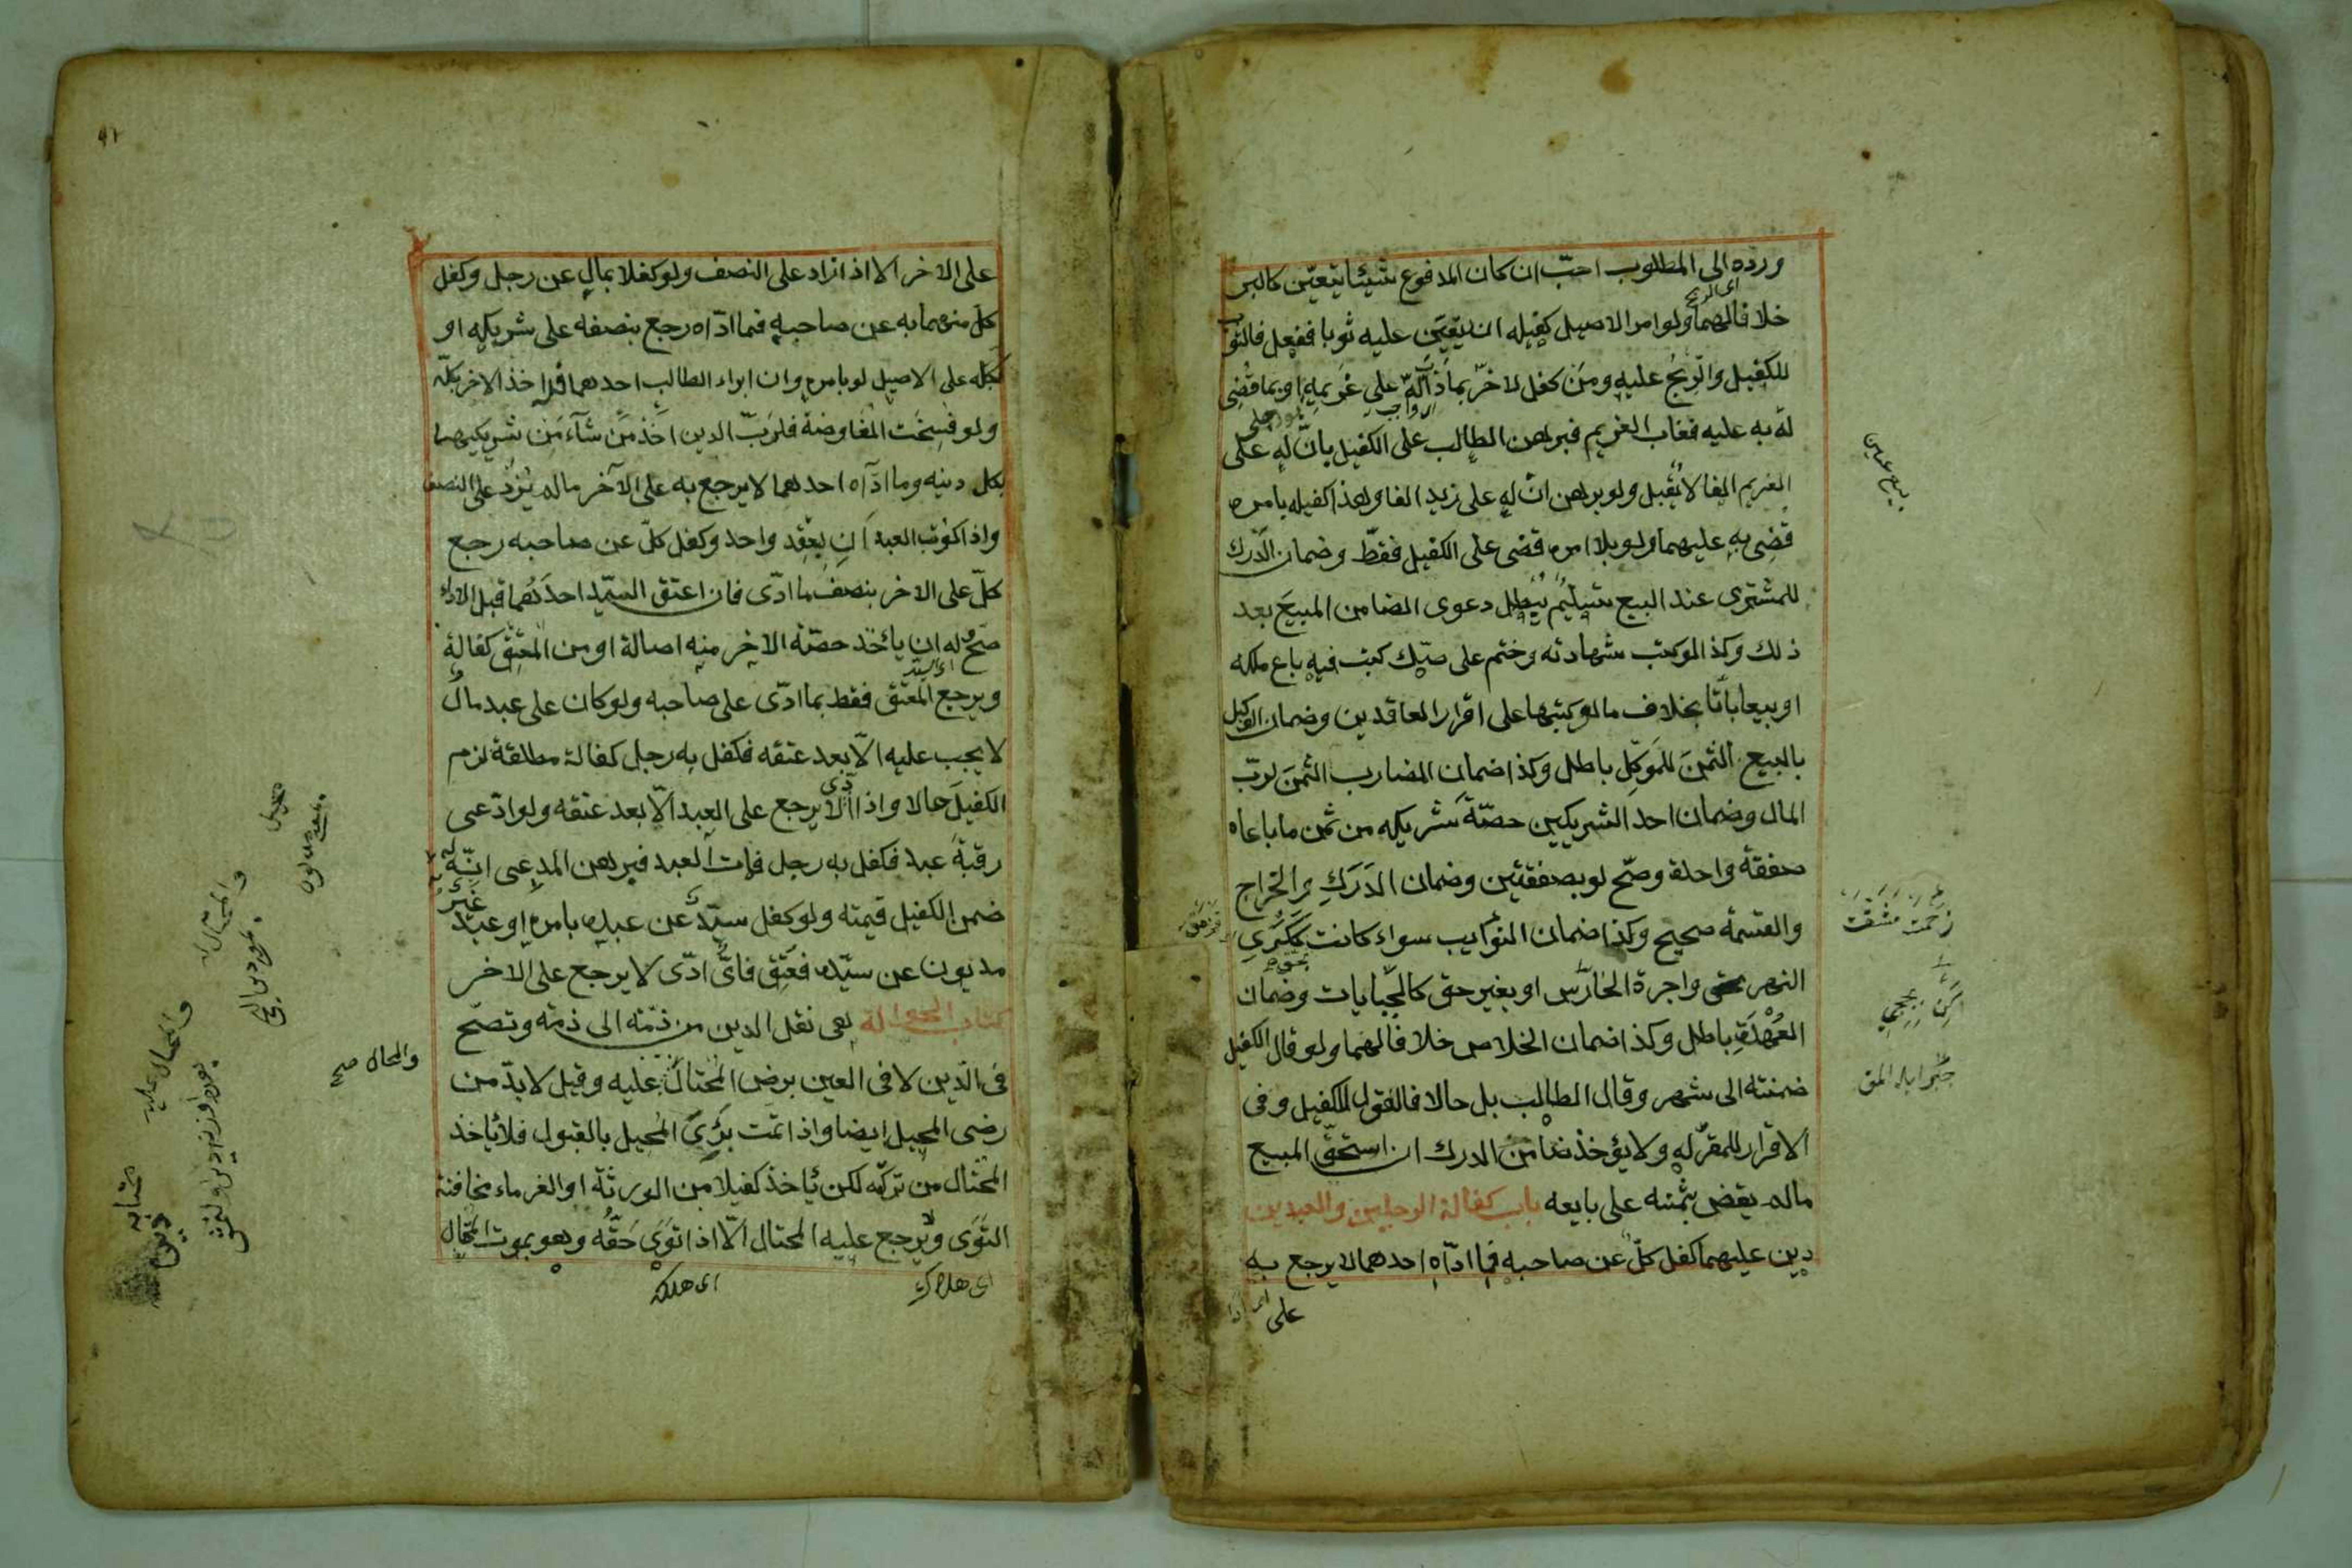 ورده الى المطلوب احبّ ان كان المدفوع شيئا يتعيّن كالبر
اى الربح
خلافا لهما ولو امر الاصيل كفيله ان يتعيّن عليه ثوبا ففعل فالثوب
للكفيل والرّبح عليه ومن كفل لاخر بما ذاب له على غريمه او بما قضى
له به عليه فغاب الغريم فبرهن الطالب على الكفيل بانّ له على
الغريم الفا لا يقبل ولو برهن انّ له على زيد الفا وهذا كفيله بامره
قضى به عليهما ولو بلا امره قضى على الكفيل فقط وضمان الدّرك
للمشترى عند البيع تسليم يبطل دعوى الضامن المبيع بعد
ذلك وكذا لو كتب شهادته وختم على صكّ كتب فيه باع ملكه
او بيعا باتّا بخلاف ما لو كتبها على اقرار العاقدين وضمان الوكيل
بالبيع الثمن للموكّل باطل وكذا ضمان المضارب الثمن لربّ
المال وضمان احد الشريكين حصّة شريكه من ثمن ما باعاه
صفقة واحدة وصحّ لو بصفقتين وضمان الدرك والخراج
والقسمة صحيح وكذا ضمان النوائب سواء كانت بحق ككرى
النهر واجرة الحارس او بغير حق كالجبايات وضمان
العهدة باطل وكذا ضمان الخلاص خلافا لهما ولو قال الكفيل
ضمنته الى شهر وقال الطالب بل حالا فالقول للكفيل وفى
الاقرار للمقرّ له ولا يؤخذ ضامن الدرك ان استحقّ المبيع
مالم يقض بثمنه على بايعه باب كفالة الرجلين والعبدين
دين عليهما كفل كلّ عن صاحبه فما ادّاه احدهما لا يرجع به
على
بيع عين
زحمت مشقت
٩١
على الاخر الا اذا زاد على النصف ولو كفلا بمال عن رجل وكفل
كلّ منهما به عن صاحبه فما ادّاه رجع بنصفه على شريكه او
بكله على الاصيل لو بامره وان ابراء الطالب احدهما فله اخذ الاخر بكلّه
ولو فسخت المفاوضة فلربّ الدين اخذ من شآء من شريكيهما
بكل دينه وما ادّاه احدهما لا يرجع به على الآخر مالم يزد على النصف
واذا كوتب العبدان بعقد واحد وكفل كلّ عن صاحبه رجع
كلّ على الاخر بنصف ما ادّى فان اعتق السيّد احدهما قبل الاداء
صحّ وله ان ياخذ حصّة الاخر منه اصالة او من المعتق كفالة
اى السيد
ويرجع المعتق فقط بما ادّى على صاحبه ولو كان على عبد مال
لا يجب عليه الّا بعد عتقه فكفل به رجل كفالة مطلقة لزم
الكفيل حالا واذا ادّى لا يرجع على العبد الّا بعد عتقه ولو ادّعى
رقبة عبد فكفل به رجل فمات العبد فبرهن المدعى انّه له
ضمن الكفيل قيمته ولو كفل سيّد عن عبده بامره او عبد غير
مديون عن سيّده فعتق فاىّ ادّى لا يرجع على الاخر
كتاب الحوالة هى نقل الدين من ذمّة الى ذمة وتصحّ
فى الدّين لا فى العين برضى المحتال والمحال عليه وقيل لا بدّ من
والمحال صح
رضى المحيل ايضا واذا تمت برئ المحيل بالقبول فلا ياخذ
المحتال من تركته لكن ياخذ كفيلا من الورثة او الغرماء مخافة
التوى ولا يرجع عليه المحتال الّا اذا توى حقّه وهو بموت المحال
اى هلاك
اى هلاكه
والمحتال له
والمحال عليه